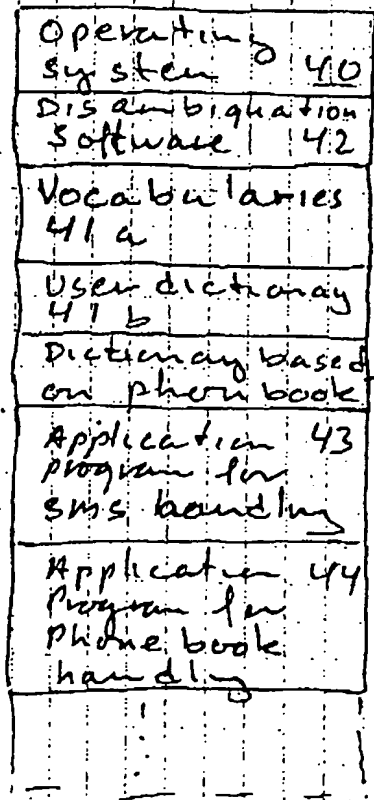 Operating
System 40
Disambiguation
Software 42
Vocabularies
41 a
User dictionary
41 b
Dictionary based
on phon book
Application 43
program for
sms handling
Application 44
Program for
Phone book
handling